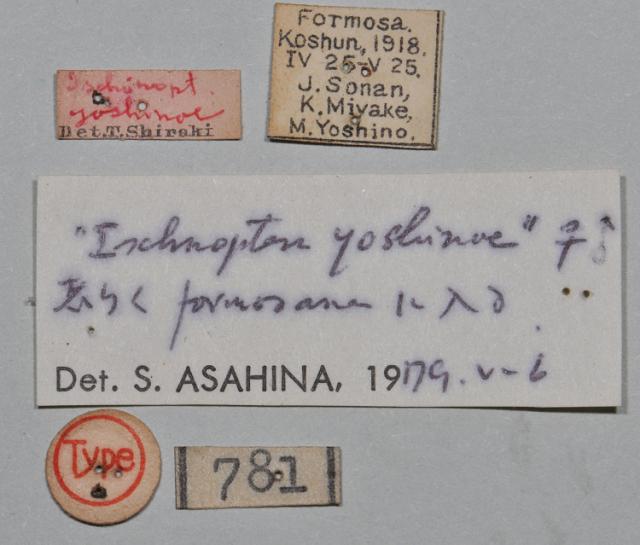 Ischnopt.
yoshinoe
Det. T. Shiraki
Formosa.
Koshun, 1918.
IV 25-V 25.
J. Sonan,
K. Miyake,
M. Yoshino.
"Ischnoptera yoshinoe" ♀
恐らく formosana に入る
Det. S. ASAHINA, 1979. V-6
Type
781